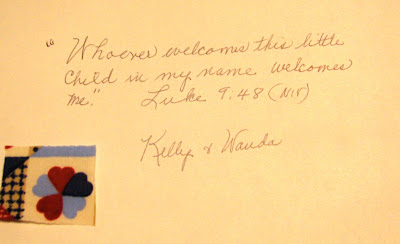 "Whoever welcomes this little
child in my name welcomes
me." Luke 9:48 (NIV)
Kelly & Wanda